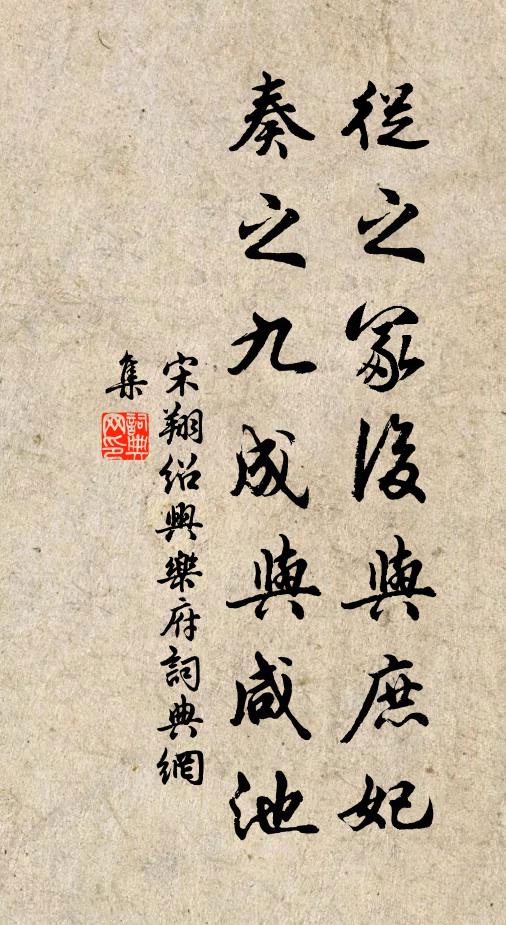 從之冢後與庶妃
奏之九成與咸池
宋翔紹興樂府詞典網
集
詞典
网印